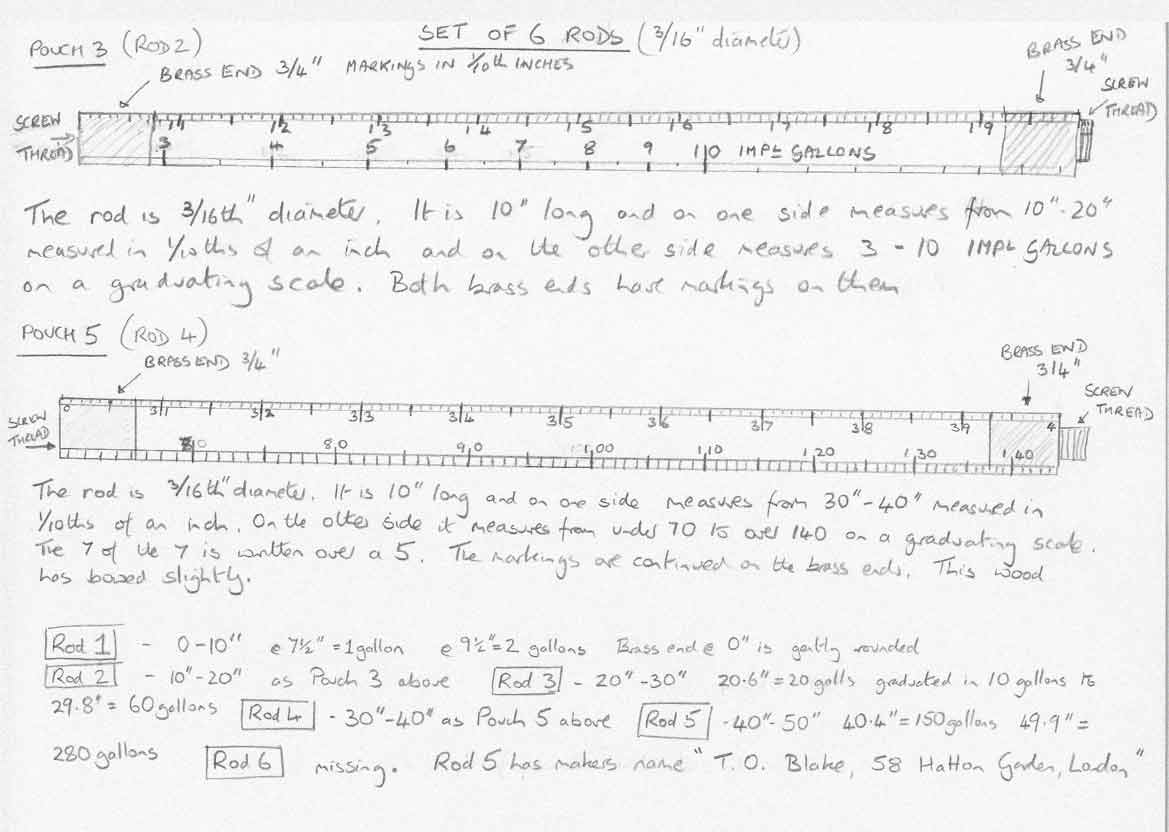 POUCH 3 (ROD 2)
SET OF 6 RODS (3/16" diameter)
BRASS END 3/4" MARKINGS IN 1/10th INCHES
BRASS END 3/4"
SCREW THREAD
SCREW THREAD
11 12 13 14 15 16 17 18 19
3 4 5 6 7 8 9 10 IMPL GALLONS
The rod is 3/16th" diameter. It is 10" long and on one side measures from 10"-20"
measured in 1/10ths of an inch and on the other side measures 3 - 10 IMPL GALLONS
on a graduating scale. Both brass ends have markings on them
POUCH 5 (ROD 4)
BRASS END 3/4"
BRASS END 3/4"
SCREW THREAD
SCREW THREAD
0 31 32 33 34 35 36 37 38 39 4
70 80 90 100 110 120 130 140
The rod is 3/16th" diameter. It is 10" long and on one side measures from 30"-40" measured in
1/10ths of an inch. On the other side it measures from under 70 to over 140 on a graduating scale.
The 7 of the 7 is written over a 5. The markings are continued on the brass ends. This wood
has bowed slightly.
Rod 1 - 0-10" @ 7½" = 1 gallon @ 9½" = 2 gallons Brass end @ 0" is gently rounded
Rod 2 - 10"-20" as Pouch 3 above Rod 3 - 20"-30" 20.6" = 20 galls graduated in 10 gallons to
29.8" = 60 gallons Rod 4 - 30"-40" as Pouch 5 above Rod 5 - 40"-50" 40.4" = 150 gallons 49.9" =
280 gallons Rod 6 missing. Rod 5 has makers name "T.O. Blake, 58 Hatton Garden, London"